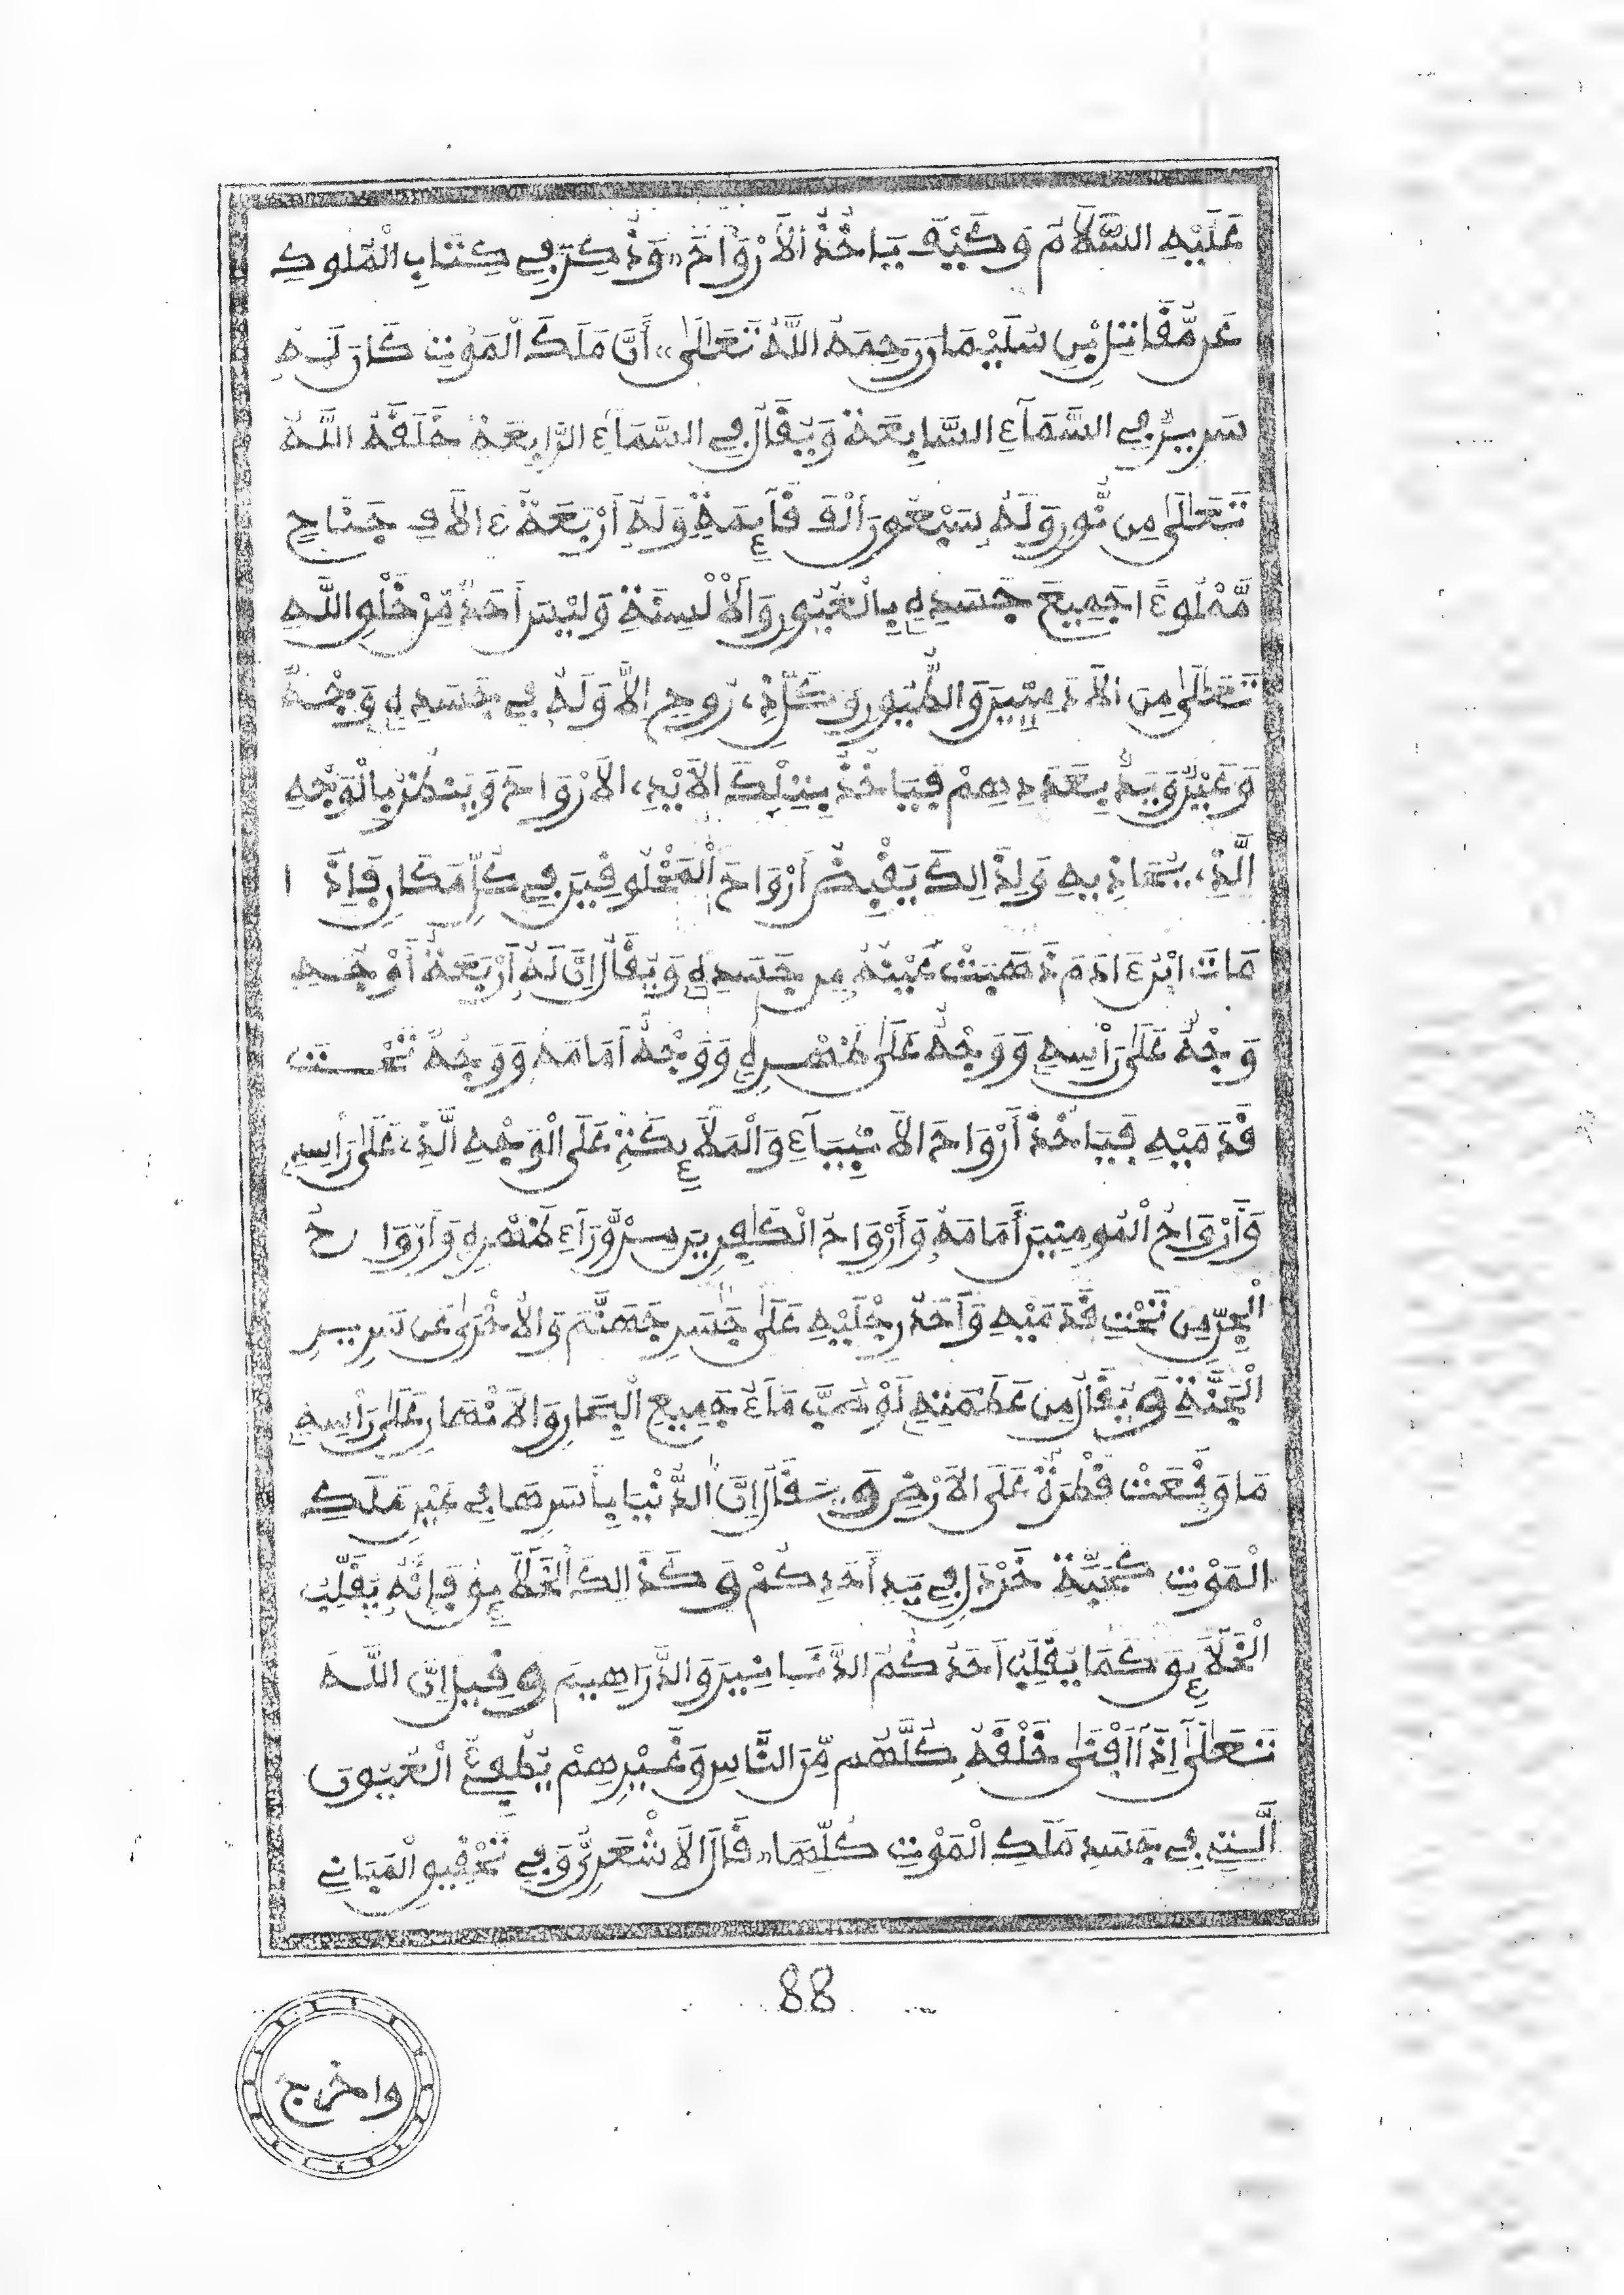 عَلَيْهِ السَّلَامُ وَكَيْفَ يَاخُذُ الْأَرْوَاحَ،، وَذُكِرَ فِي كِتَابِ الْمُلُوكِ
عَن مُّقَاتِلِ بْنِ سُلَيْمَانَ رَحِمَهُ اللَّهُ تَعَالَىٰ،، أَنَّ مَلَكَ الْمَوْتِ كَانَ لَهُ
سَرِيرٌ فِي السَّمَآءِ السَّابِعَةِ وَيُقَالُ فِي السَّمَآءِ الرَّابِعَةِ خَلَقَهُ اللَّهُ
تَعَالَىٰ مِن نُّورٍ وَلَهُ سَبْعُونَ أَلْفَ قَآئِمَةٍ وَلَهُ أَرْبَعَةُ ءَالَافِ جَنَاحٍ
مَّمْلُوءًا جَمِيعَ جَسَدِهِ بِالْعُيُونِ وَالْأَلْسِنَةِ وَلَيْسَ أَحَدٌ مِّنْ خَلْقِ اللَّهِ
تَعَالَىٰ مِنَ الْأَدَمِيِّينَ وَالطُّيُورِ وَكُلِّ ذِي رُوحٍ إِلَّا وَلَهُ فِي جَسَدِهِ وَجْهٌ
وَعَيْنٌ وَيَدٌ بِعَدَدِهِمْ فَيَاخُذُ بِتِلْكَ الْأَيْدِي الْأَرْوَاحَ وَيَنظُرُ بِالْوَجْهِ
الَّذِي يُحَاذِيهِ وَلِذَالِكَ يَقْبِضُ أَرْوَاحَ الْمَخْلُوقِينَ فِي كُلِّ مَكَانٍ فَإِذَا
مَاتَ ابْنُ ءَادَمَ ذَهَبَتْ عَيْنُهُ مِن جَسَدِهِ وَيُقَالُ إِنَّ لَهُ أَرْبَعَةَ أَوْجُهٍ
وَجْهٌ عَلَىٰ رَأْسِهِ وَوَجْهٌ عَلَىٰ ظَهْرِهِ وَوَجْهٌ أَمَامَهُ وَوَجْهٌ تَحْتَ
قَدَمَيْهِ فَيَاخُذُ أَرْوَاحَ الْأَنبِيَآءِ وَالْمَلَآئِكَةِ عَلَى الْوَجْهِ الَّذِي عَلَىٰ رَأْسِهِ
وَأَرْوَاحُ الْمُومِنِينَ أَمَامَهُ وَأَرْوَاحُ الْكَافِرِينَ مِن وَّرَآءِ ظَهْرِهِ وَأَرْوَاحُ
الْجِنِّ مِن تَحْتِ قَدَمَيْهِ وَأَحَدُ رِجْلَيْهِ عَلَىٰ جَسَرِ جَهَنَّمَ وَالْأُخْرَىٰ عَن سَرِيرِ
الْجَنَّةِ وَيُقَالُ مِن عَظَمَتِهِ لَوْ صُبَّ مَآءُ جَمِيعِ الْبِحَارِ وَالْأَنْهَارِ عَلَىٰ رَأْسِهِ
مَا وَقَعَتْ قَطْرَةٌ عَلَى الْأَرْضِ وَ قَالَ إِنَّ الدُّنْيَا بِأَسْرِهَا فِي عَيْنِ مَلَكِ
الْمَوْتِ كَحَبَّةِ خَرْدَلٍ فِي يَدِ أَحَدِكُمْ وَكَذَالِكَ الْخَلَآئِقُ فَإِنَّهُ يُقَلِّبُ
الْخَلَآئِقَ كَمَا يُقَلِّبُ أَحَدُكُمُ الدَّنَانِيرَ وَالدَّرَاهِيمَ وَقِيلَ إِنَّ اللَّهَ
تَعَالَىٰ إِذَآ أَفْنَىٰ خَلْقَهُ كُلَّهُم مِّنَ النَّاسِ وَغَيْرِهِمْ يُطْفِئُ الْعُيُونَ
الَّتِي فِي جَسَدِ مَلَكِ الْمَوْتِ كُلِّهَا،، قَالَ الْأَشْعَرِيُّ وَفِي تَحْقِيقِ الْمَبَانِي
88
واخرج